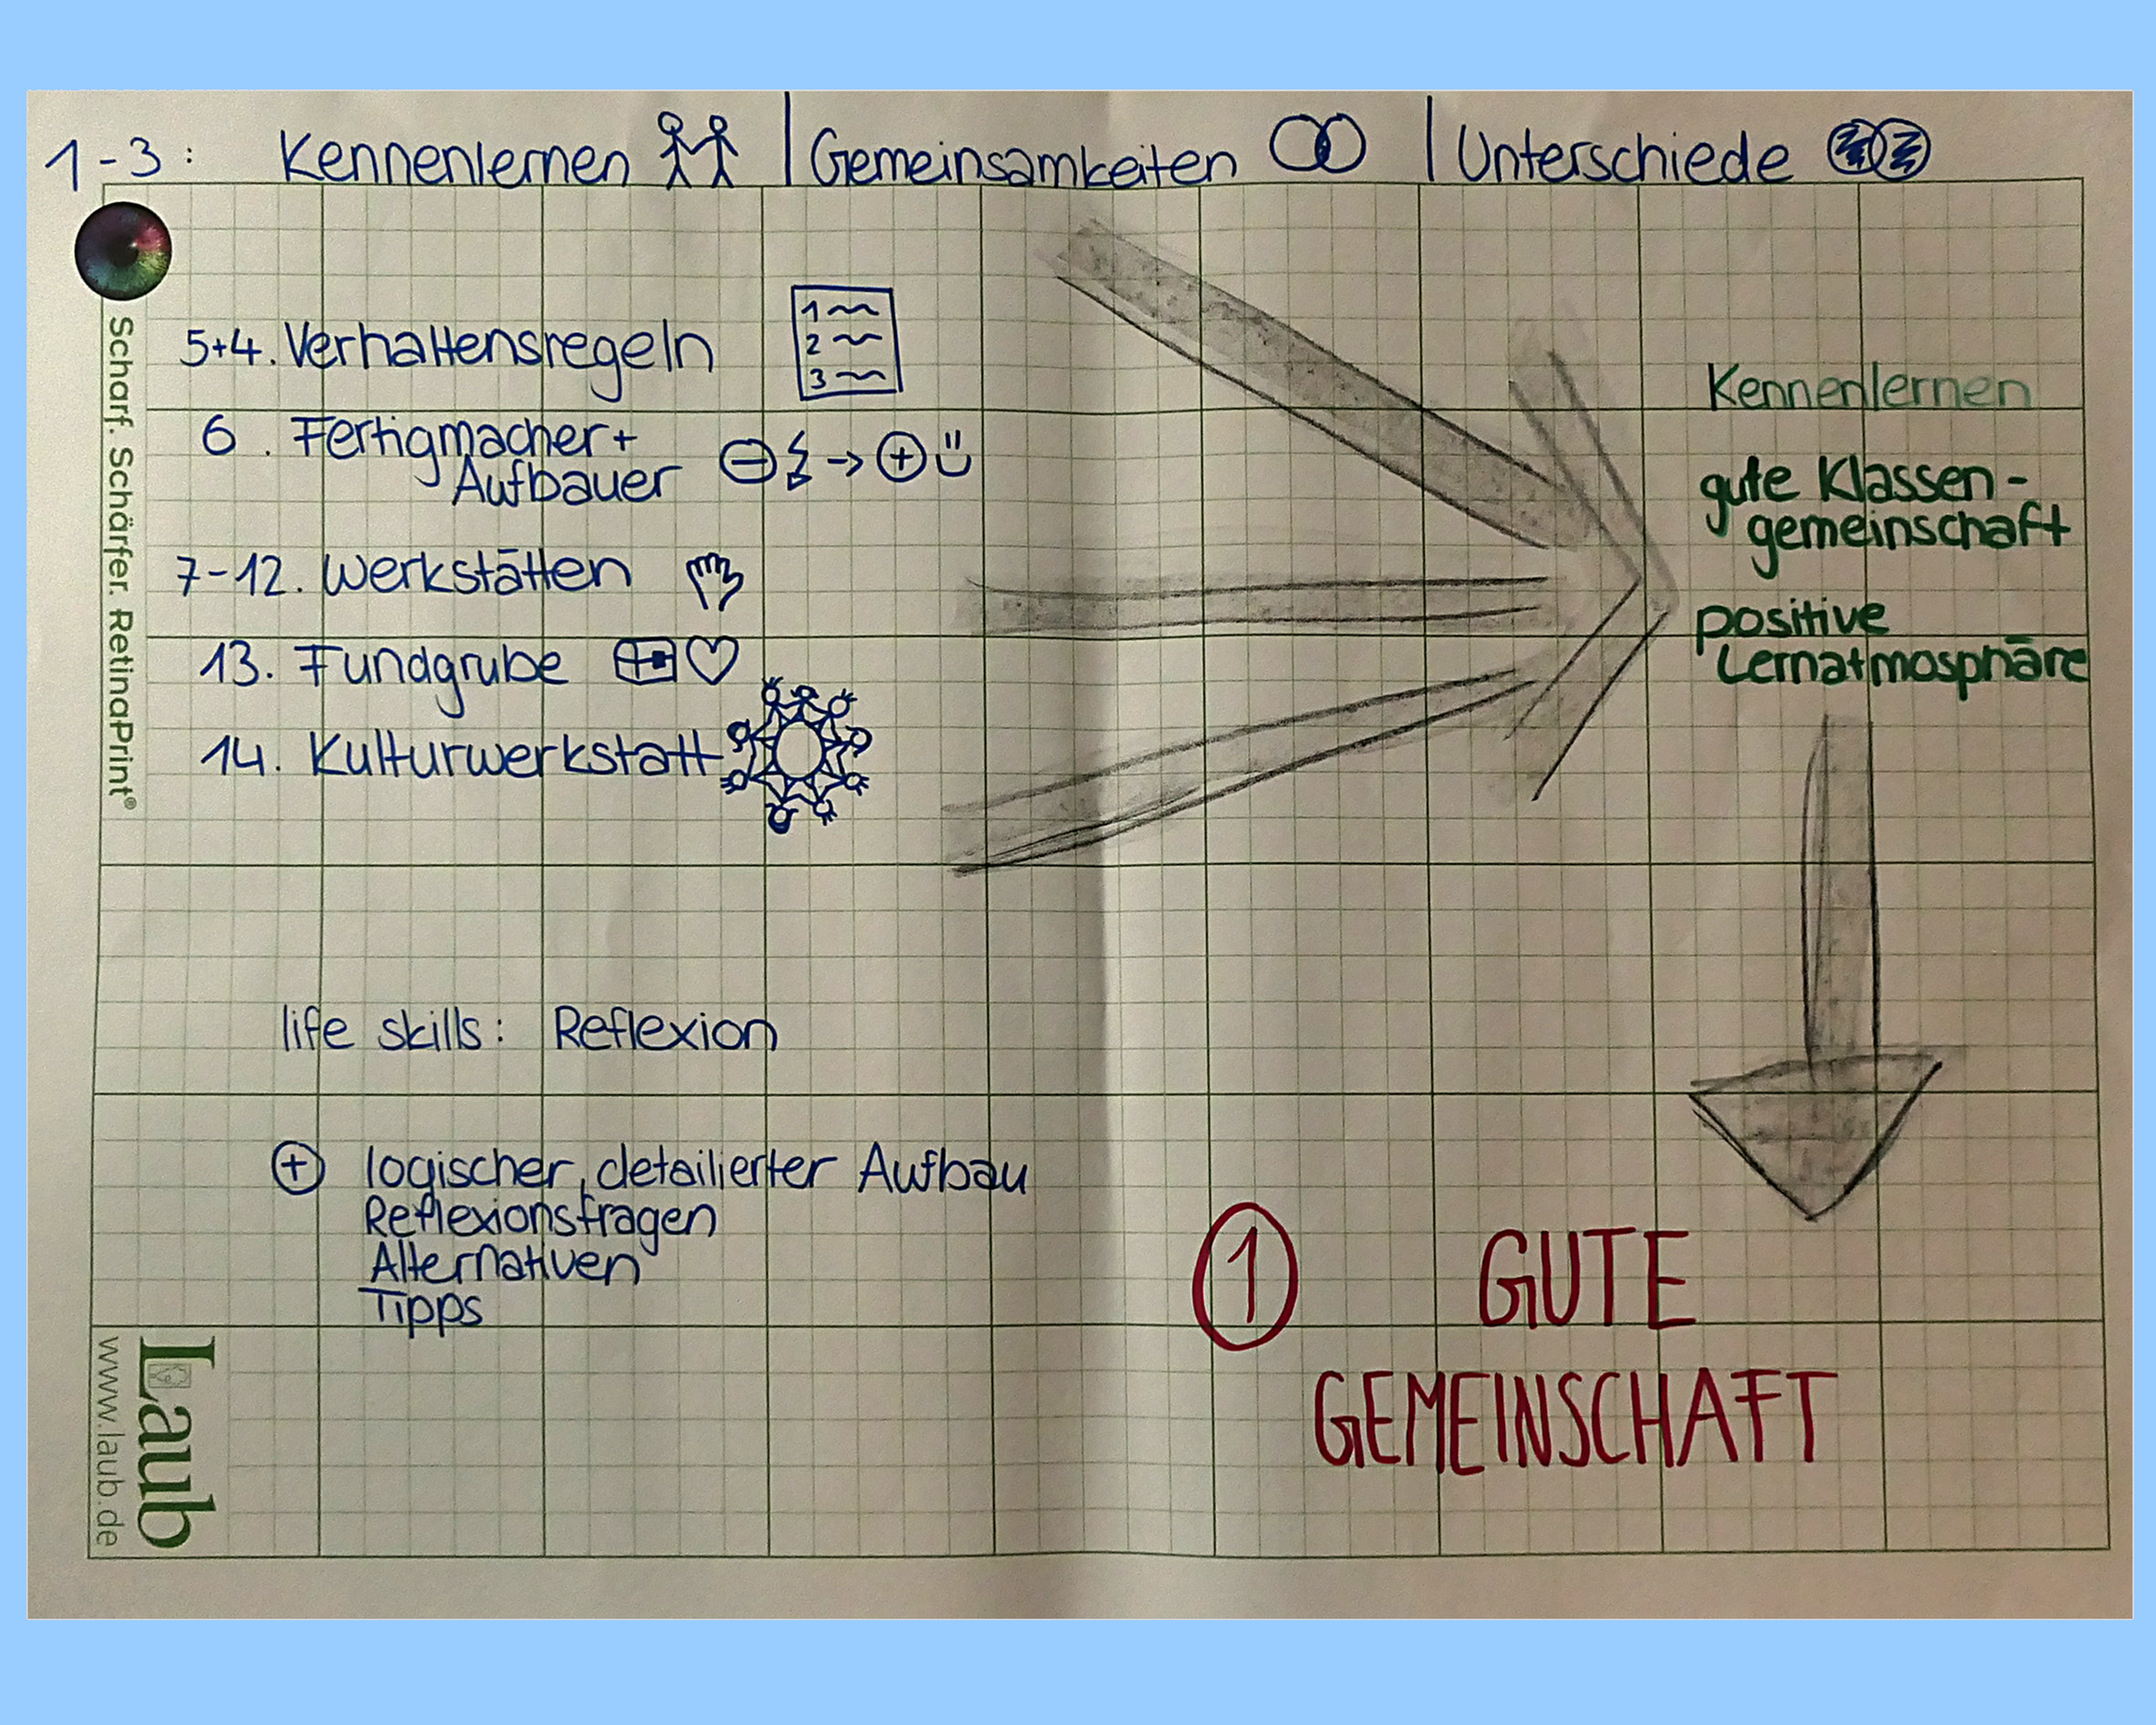 1-3: Kennenlernen | Gemeinsamkeiten | Unterschiede
5+4. Verhaltensregeln
1
2
3
6. Fertigmacher+
Aufbauer
7-12. Werkstätten
13. Fundgrube
14. Kulturwerkstatt
Kennenlernen
gute Klassen-
gemeinschaft
positive
Lernatmosphäre
life skills: Reflexion
+ logischer, detailierter Aufbau
Reflexionsfragen
Alternativen
Tipps
1 GUTE
GEMEINSCHAFT
Scharf. Schärfer. RetinaPrint®
Laub
www.laub.de